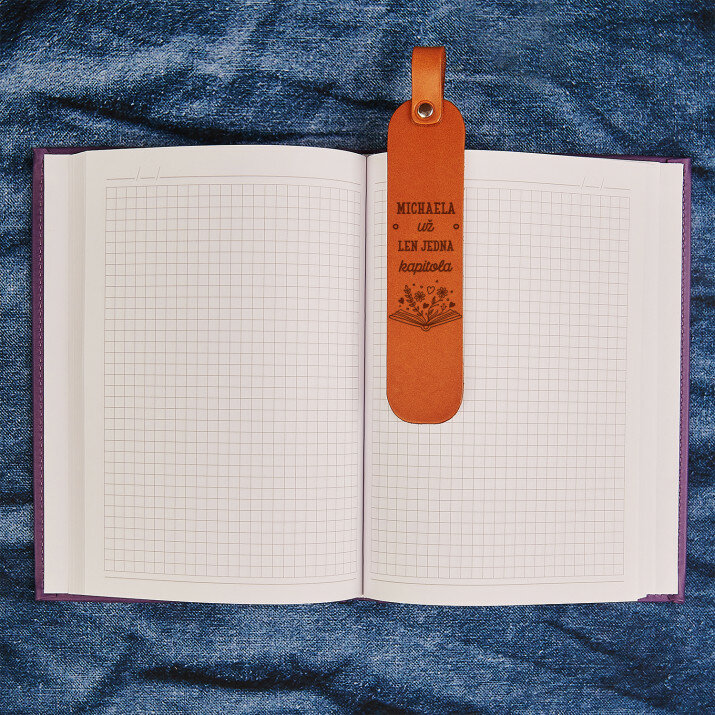 MICHAELA
už
LEN JEDNA
kapitola